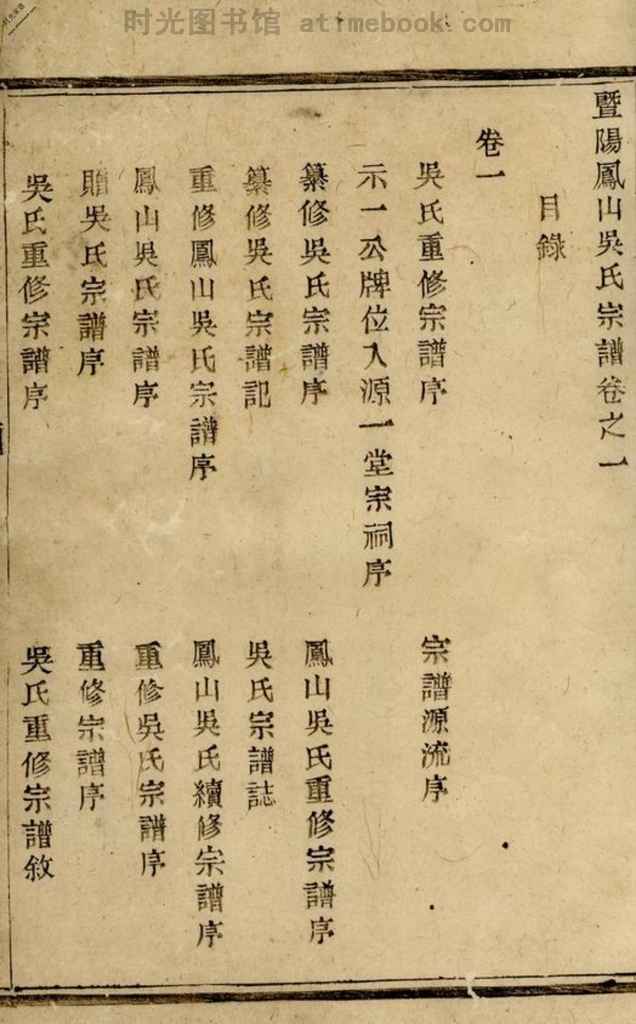 时光图书馆 atimebook.com
暨陽鳳山吳氏宗譜卷之一
目錄
卷一
吳氏重修宗譜序 宗譜源流序
示一公牌位入源一堂宗祠序
纂修吳氏宗譜序 鳳山吳氏重修宗譜序
纂修吳氏宗譜記 吳氏宗譜誌
重修鳳山吳氏宗譜序 鳳山吳氏續修宗譜序
鳳山吳氏宗譜序 重修吳氏宗譜序
贈吳氏宗譜序 重修宗譜序
吳氏重修宗譜序 吳氏重修宗譜敘